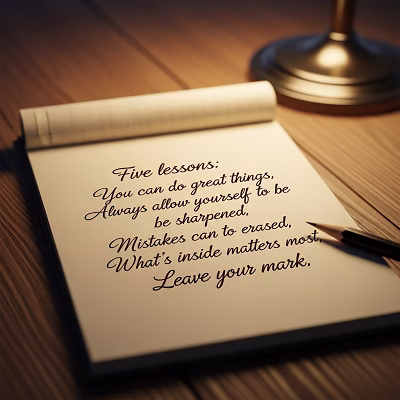 Five lessons:
You can do great things,
Always allow yourself to be
be sharpened,
Mistakes can to erased,
What's inside matters most,
Leave your mark.